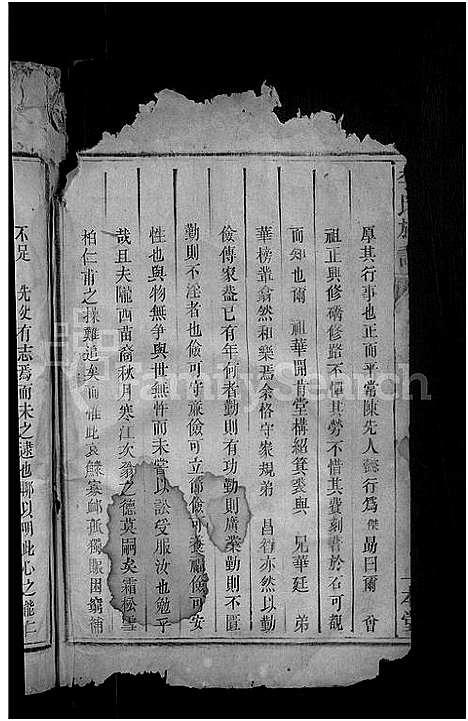 厚其行事也正而平常陳先人懿行爲傑勗曰爾 曾
祖正與修橋修路不憚其勞不惜其費刻書於石可觀
而知也爾 祖華開肯堂構紹箕裘與 兄華廷 弟
華榜壎翕然和樂焉余恪守家規弟 昌 亦然以勤
儉傳家葢已有年何者勤則有功勤則廣業勤則不匱
勤則不淫者也儉可守旅儉可立 儉可養福儉可安
性也與物無爭與世無忤而未嘗以訟受服汝也勉乎
哉且夫隴西苗裔秋月寒江次翁之德莫嗣矣霜松雪
柏仁甫之操難追矣而惟此哀鰥寡卹孤獨賑困窮補
不足 先父有志焉而未之逮也 以明此心之 仁
FamilySearch